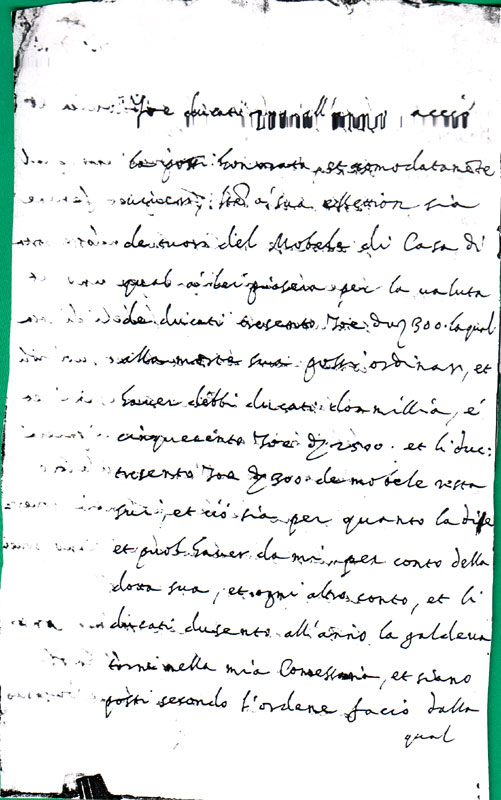 Zoe ducati all'anno, acciò
la possi honorata, et comodatamẽte
viver, stãdo à sua elletion sia
de tuor del Mobele di Casa di
qual a lei piaserà per la valuta
de ducati tresento Zoe duȝ 300. la qual
alla morte sua possi ordinar, et
haver debbi ducati domillia, é
cinquecento Zoe dȝ 2500. et li duc:
tresento Zoe dȝ 300. de mobele resta
suri, et ciò sia per quanto la
et può haver da mi, per conto della
dota sua, et ogni altro conto, et li
ducati dusento all'anno la galdeva
torni nella mia Comessaria, et siano
posti secondo l'ordene facio dalla
qual